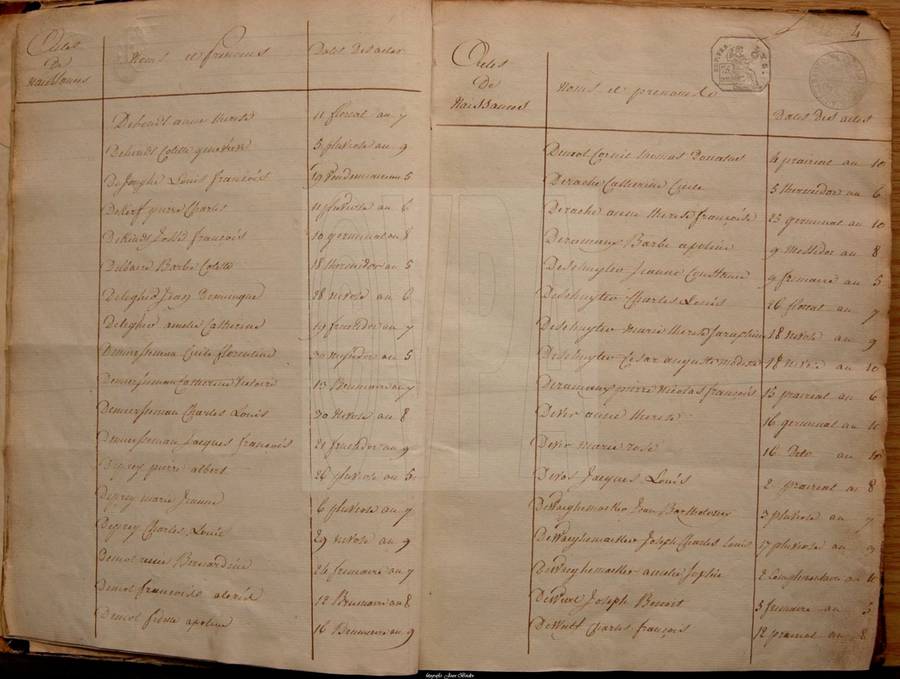 Actes
de
Naissances
Noms et prenoms
Dates des actes
anne therese 11 floreal an 7
Colette genevieve 5 pluviose an 9
De Jonghe Louis francois 19 Vendemiaire an 5
DeKerf pierre Charles 11 pluviose an 6
francois 10 germinal an 8
Barbe Colette 18 thermidor an 5
Deleghir Jean Dominique 28 nivose an 6
Deleghir amelie Catherine 19 fructidor an 7
Demersseman Cecile florentine 30 messidor an 5
Demersseman Catherine Victoire 13 Brumaire an 7
Demersseman Charles Louis 20 nivose an 8
Demersseman Jacques francois 21 fructidor an 9
Deprey pierre albert 26 pluviose an 5
Deprey marie Jeanne 6 pluviose an 7
Deprey Charles Louis 29 nivose an 9
Bernardine 24 frimaire an 7
Demol francoise 12 Brumaire an 8
Demol apoline 16 Brumaire an 9
4
Actes
de
Naissances
Noms et prenoms
Dates des actes
thomas Donatus 4 prairial an 10
Derache Catherine Cecile 5 thermidor an 6
Derache anne therese françoise 25 germinal an 10
Deramaux Barbe apoline 9 Messidor an 8
DeSchuyter Jeanne Constance 9 frimaire an 5
DeSchuyter Charles Louis 26 floreal an 7
DeSchuyter marie therese Seraphine 18 nivose an 9
DeSchuyter Cesar auguste modeste 18 nivose an 10
Deramaux pierre Nicolas françois 15 prairial an 6
anne therese 16 germinal an 10
marie rose 16 Dito an 10
Devos Jacques Louis 2 prairial an 8
DeWaeghemaeker Jean Bartholomé 3 pluviose an 7
DeWaeghemaeker Joseph Charles Louis 17 pluviose an 9
DeWaeghemaeker amelie Sophie 2 Complementaire an 10
Joseph Benoit 3 frimaire an 5
DeWulf Charles françois 12 prairial an 8